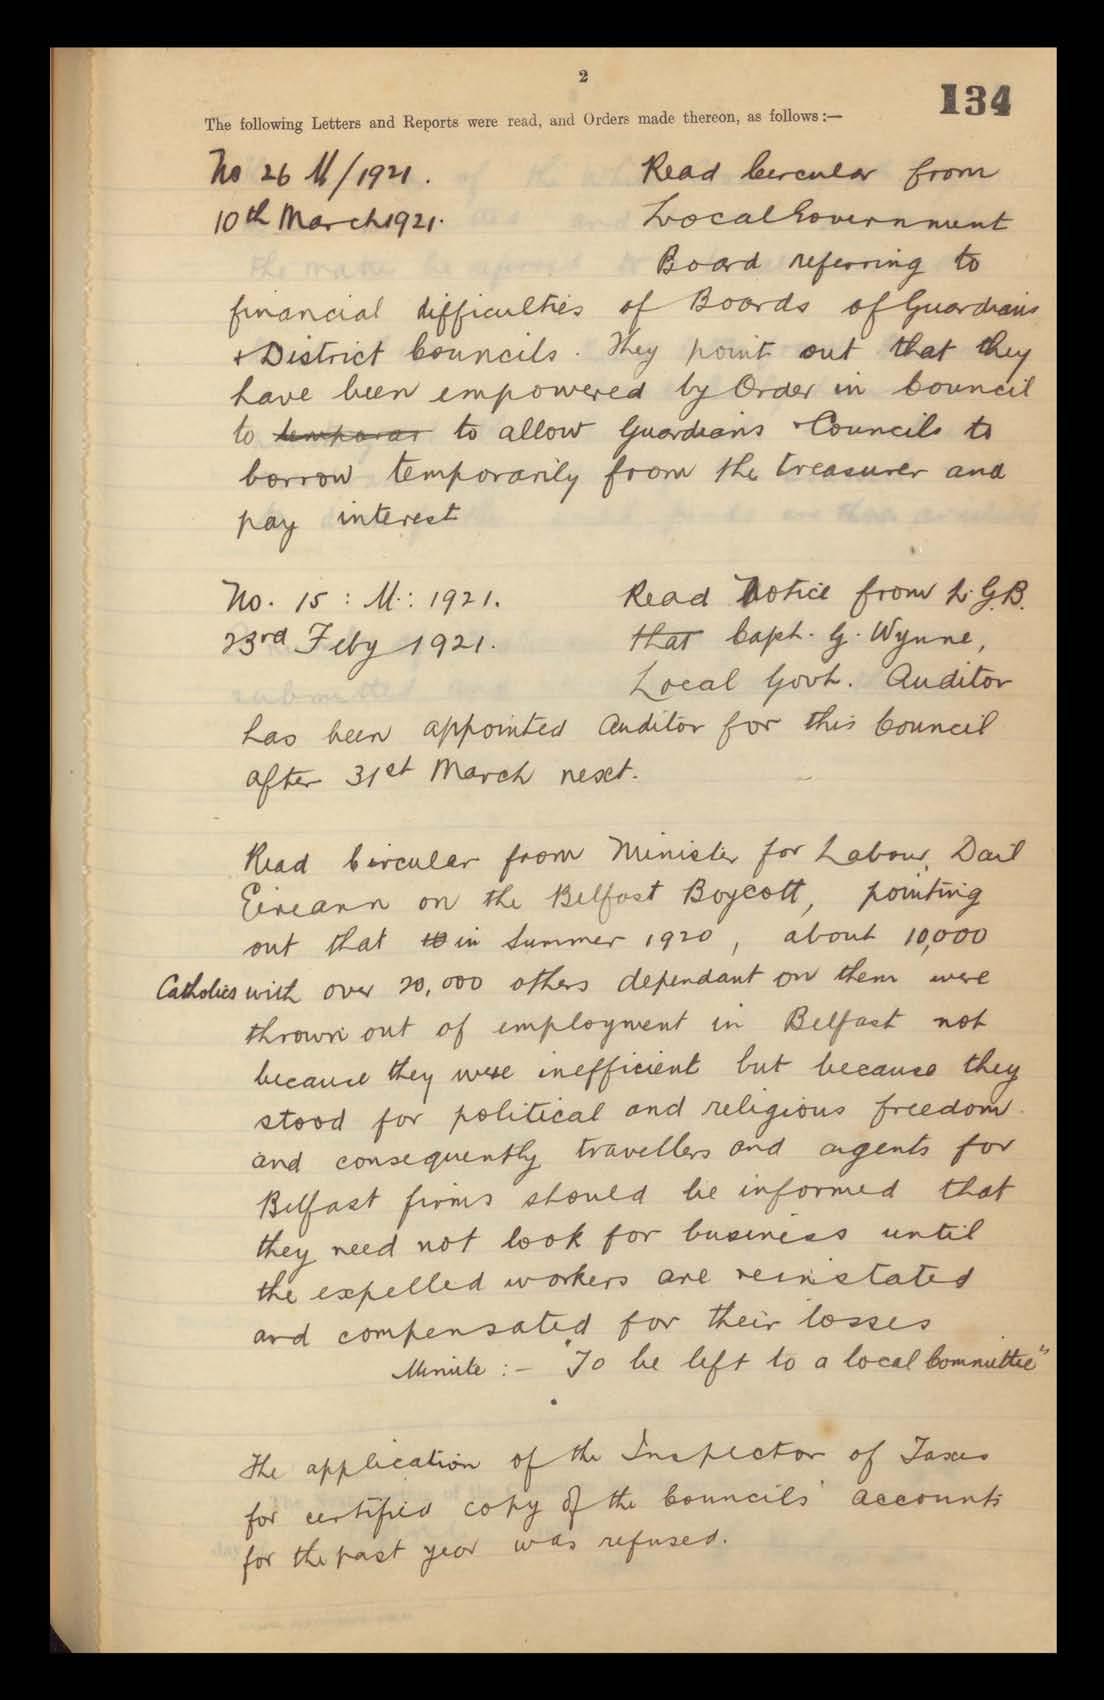 2
134
The following Letters and Reports were read, and Orders made thereon, as follows:—
No 26 M/1921. Read Circular from
10th March 1921. Local Government
Board referring to
financial difficulties of Boards of Guardians
& District Councils. They point out that they
have been empowered by Order in Council
to temporar to allow Guardians & Councils to
borrow temporarily from the treasurer and
pay interest
No. 15 : M : 1921. Read Notice from L.G.B.
23rd Feby 1921. that Capt. G. Wynne,
Local Govt. Auditor
has been appointed Auditor for this Council
after 31st March next.
Read Circular from Minister for Labour, Dail
Eireann on the Belfast Boycott, pointing
out that to in Summer 1920, about 10,000
Catholics with over 20,000 others dependant on them were
thrown out of employment in Belfast not
because they were inefficient but because they
stood for political and religious freedom.
and consequently travellers and agents for
Belfast firms should be informed that
they need not look for business until
the expelled workers are reinstated
and compensated for their losses
Minute :- "To be left to a local Committee"
The application of the Inspector of Taxes
for certified copy of the Councils' accounts
for the past year was refused.